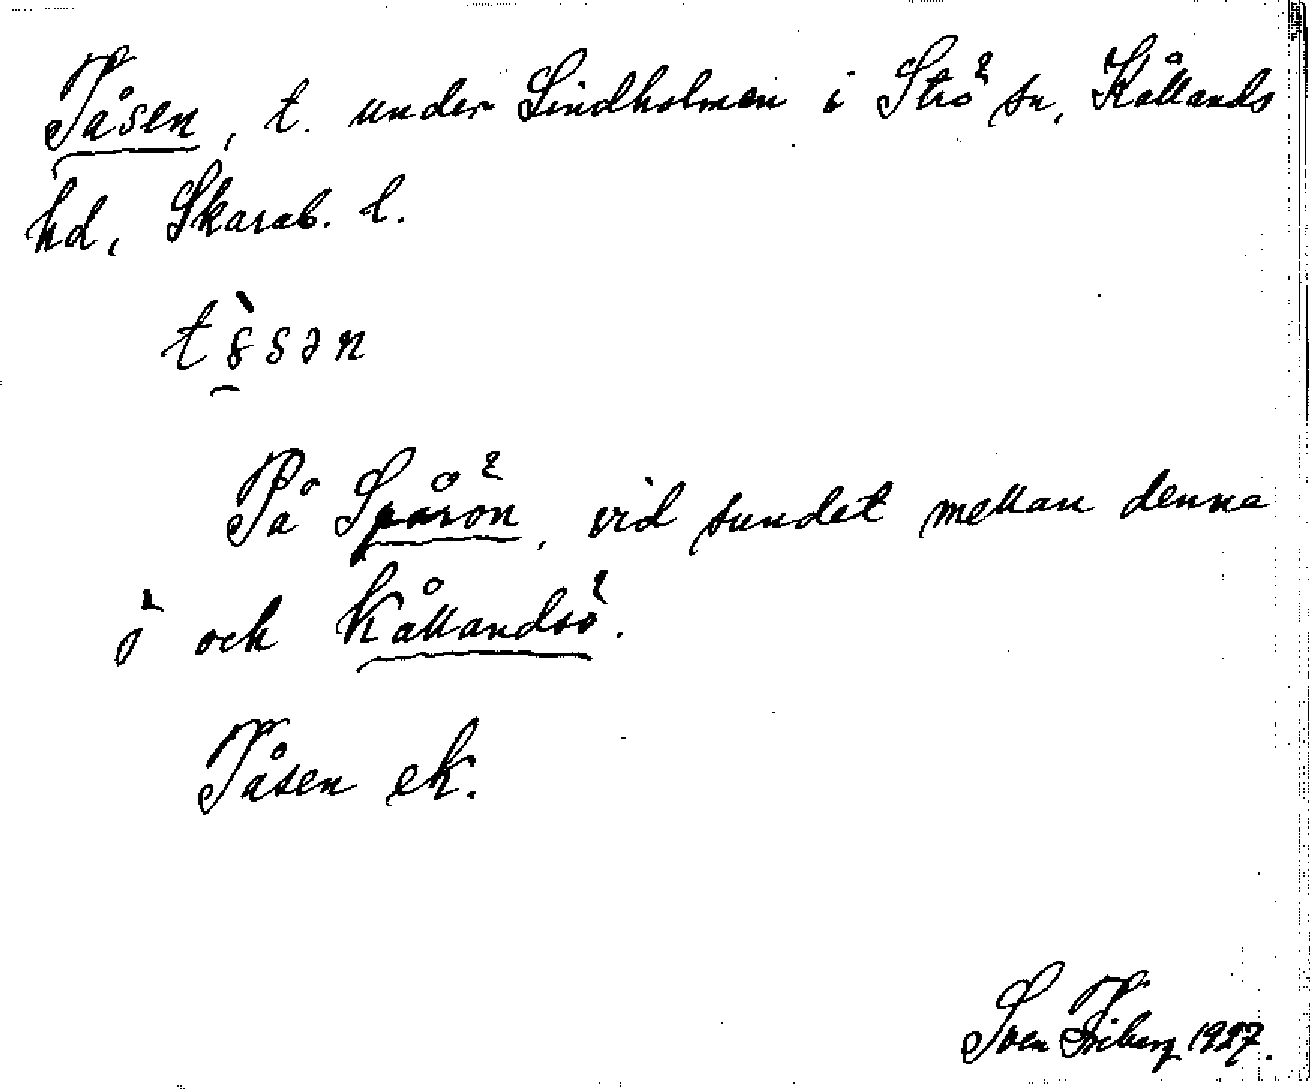 Tåsen, t. under Lindholmen i Strö sn, Kållands
hd, Skarab. l.
På Spårön, vid sundet mellan denna
ö och Kållandsö.
Tåsen ek.
Sven Friberg 1927.